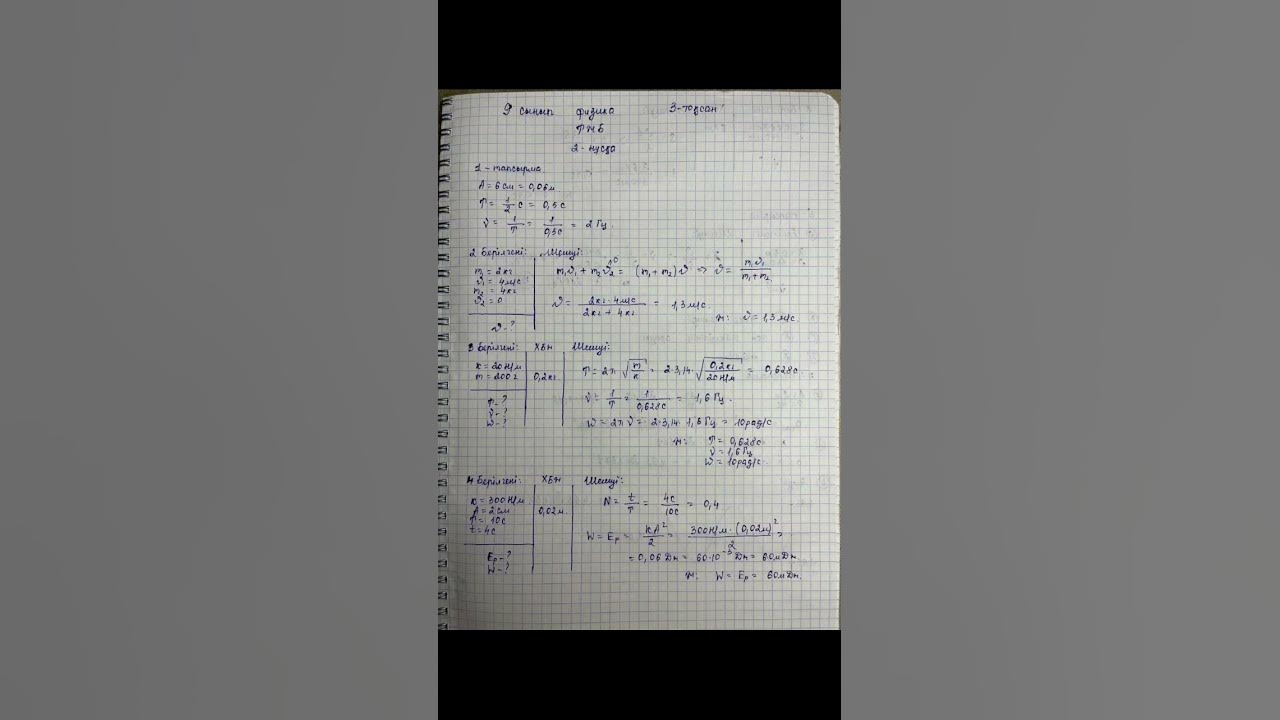 9 сынып физика 3-тоқсан
ТЖБ
2-нұсқа
1-тапсырма
A = 6 см = 0,06 м
T = 1/2 с = 0,5 с
ν = 1/T = 1/0,5с = 2 Гц.
2 Берілгені: Шешуі:
m₁ = 2 кг
ϑ₁ = 4 м/с
m₂ = 4 кг
ϑ₂ = 0
ϑ - ?
m₁ϑ₁ + m₂ϑ₂⁰ = (m₁ + m₂)ϑ ⇒ ϑ = m₁ϑ₁/m₁+m₂
ϑ = 2кг·4м/с/2кг + 4кг = 1,3 м/с.
Ж: ϑ = 1,3 м/с.
3 Берілгені: ХБЖ Шешуі:
k = 20 Н/м
m = 200 г 0,2 кг
T - ?
ν - ?
W - ?
T = 2π √m/k = 2·3,14·√0,2кг/20Н/м = 0,628 с.
ν = 1/T = 1/0,628с = 1,6 Гц.
W = 2πν = 2·3,14·1,6 Гц = 10 рад/с
Ж: T = 0,628 с
ν = 1,6 Гц
W = 10 рад/с
4 Берілгені: ХБЖ Шешуі:
k = 300 Н/м
A = 2 см 0,02 м.
T = 10 с
t = 4 с
Eₚ - ?
W - ?
N = t/T = 4с/10с = 0,4
W = Eₚ = kA²/2 = 300 Н/м·(0,02м)²/2 =
= 0,06 Дж = 60·10⁻³ Дж = 60 мДж.
Ж: W = Eₚ = 60 мДж.